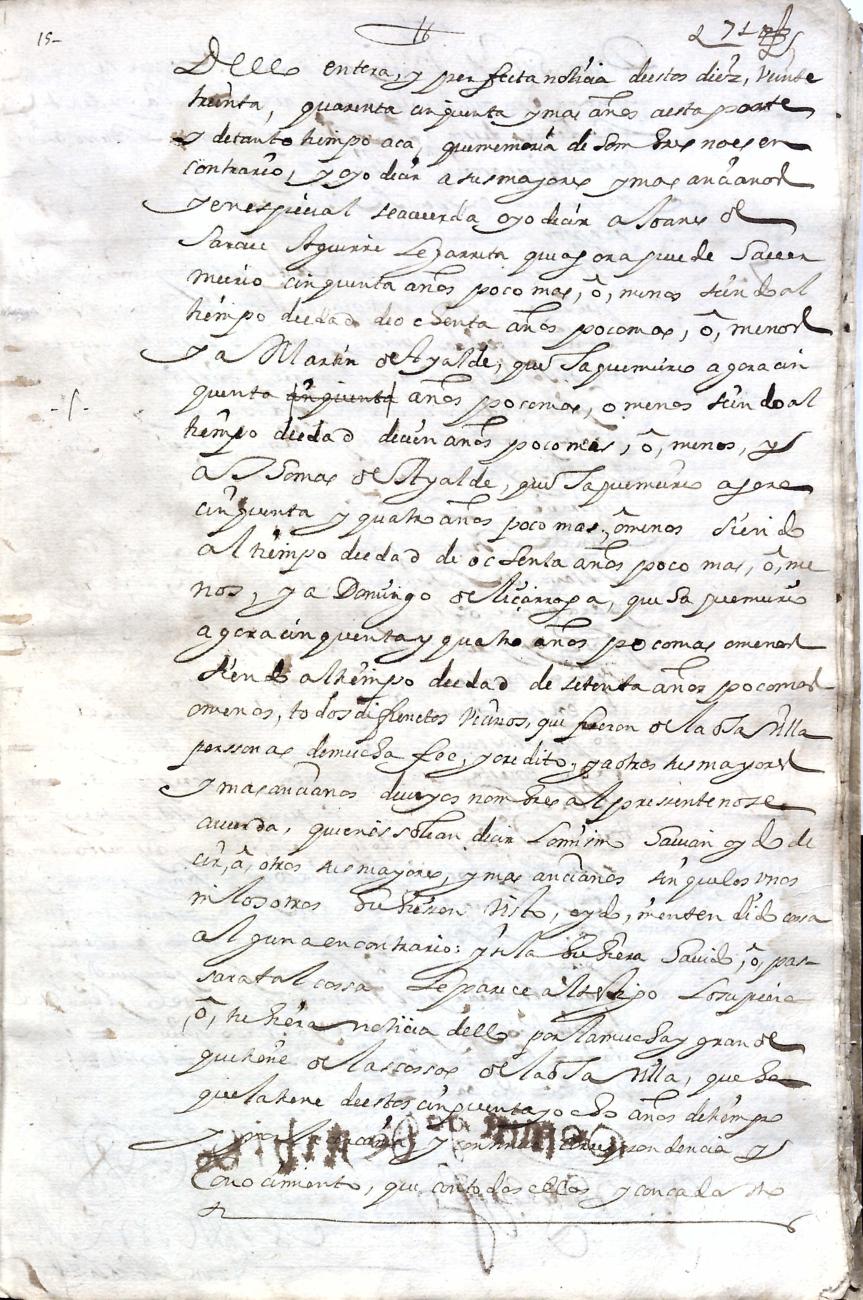 15-
16
Dello entera, y perfecta noticia de estos diez, veinte
treinta, quarenta cinquenta y mas años aesta parte
y detanto tiempo aca, que memoria de hombres noes en
contrario, y oyo decir a sus mayores y mas ancianos
y en especial seacuerda oyo decir a Joanes de
Aguirre Leçarreta que agora puede haver
murio cinquenta años poco mas, ô, menos siendo al
tiempo de edad de ochenta años poco mas, ô, menos
y a Martin de Ayalde, que ha que murio agora cin
quenta cinquenta años poco mas, o menos siendo al
tiempo de edad de cien años poco mas, ô, menos, y
a Thomas de Ayalde, que ha que murio agora
cinquenta y quatro años poco mas, ô menos siendo
al tiempo de edad de ochenta años poco mas, ô, me
nos, y a Domingo de que ha que murio
agora cinquenta y quatro años poco mas o menos
siendo al tiempo de edad de setenta años poco mas
o menos, todos difuntos vecinos, que fueron de la dha Villa
perssonas de mucha fee, y credito, y a otros sus mayores
y mas ancianos de cuyos nombres al presente no se
acuerda, quienes solian decir lo mismo havian oydo de
cir, â, otros sus mayores, y mas ancianos sin que los unos
ni los otros huviessen visto, oydo, ni entendido cossa
alguna en contrario; y si la huviera havido, ô, pas-
sara tal cossa le parece al testigo lo supiera
ô, tuviera noticia dello por la mucha y grande
que tiene de las cossas de la dha Villa, que ha
que la tiene de estos cinquenta y ocho años de tiempo
y por la y continua correspondencia y
Conocimiento, que con todos ellos y con cada uno